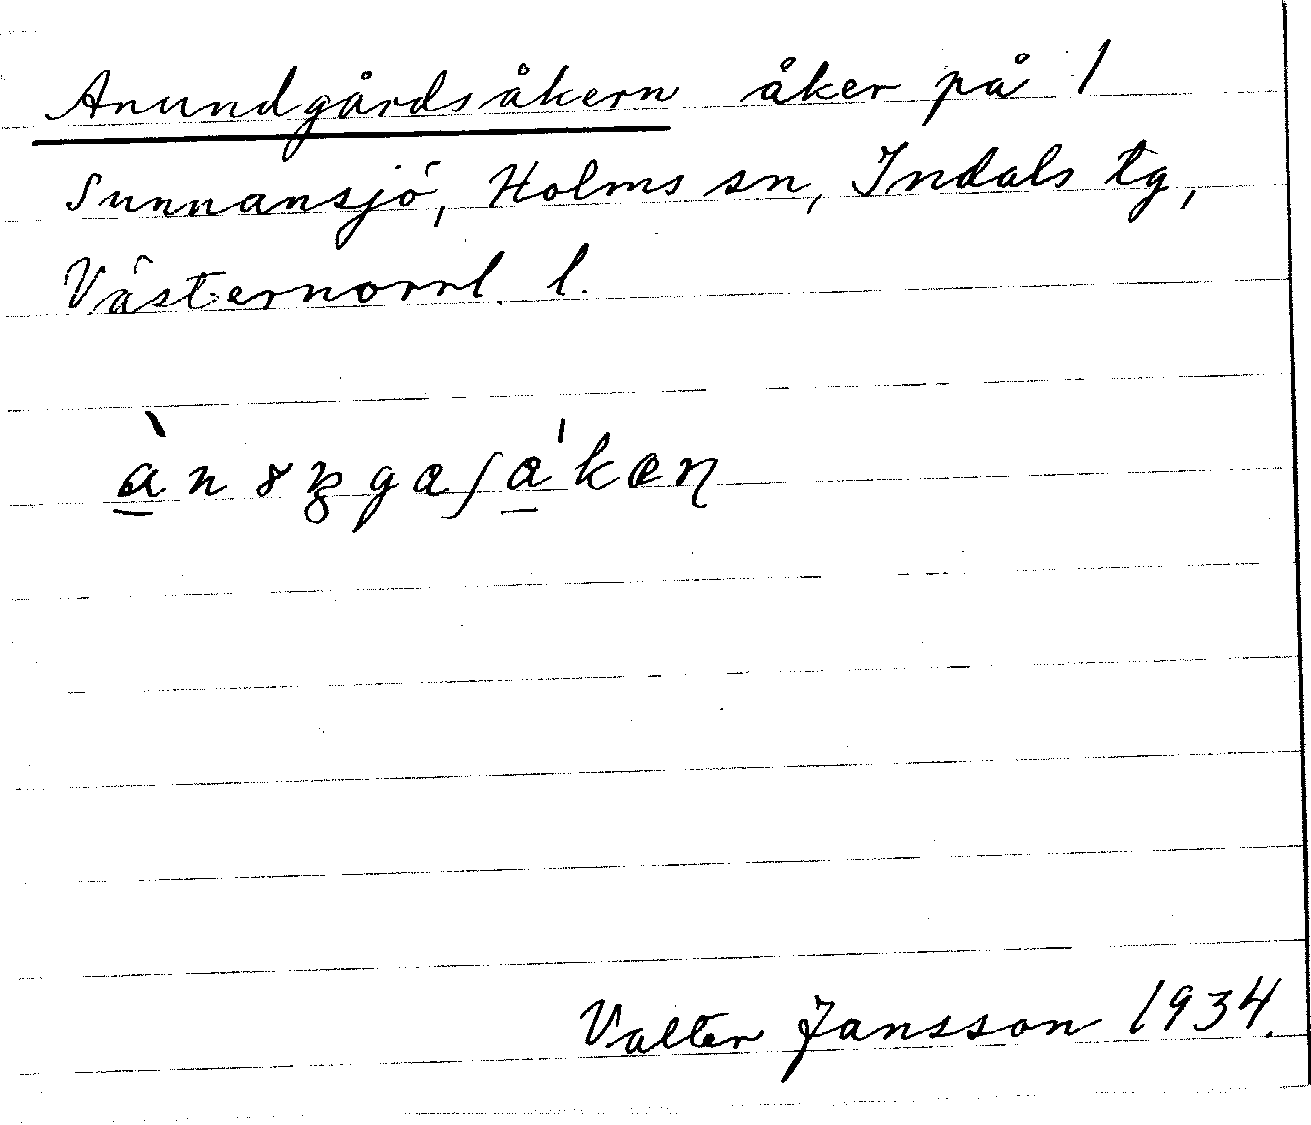 Anundgårdsåkern åker på 1
Sunnansjö, Holms sn, Indals tg,
Västernorrl. l.
Valter Jansson 1934.